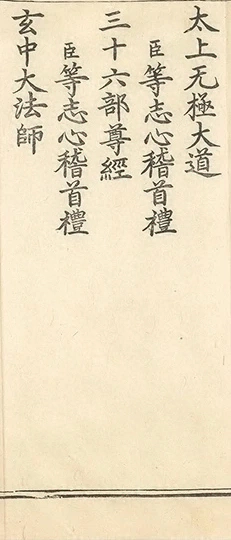 太上无極大道
臣等志心稽首禮
三十六部尊經
臣等志心稽首禮
玄中大法師